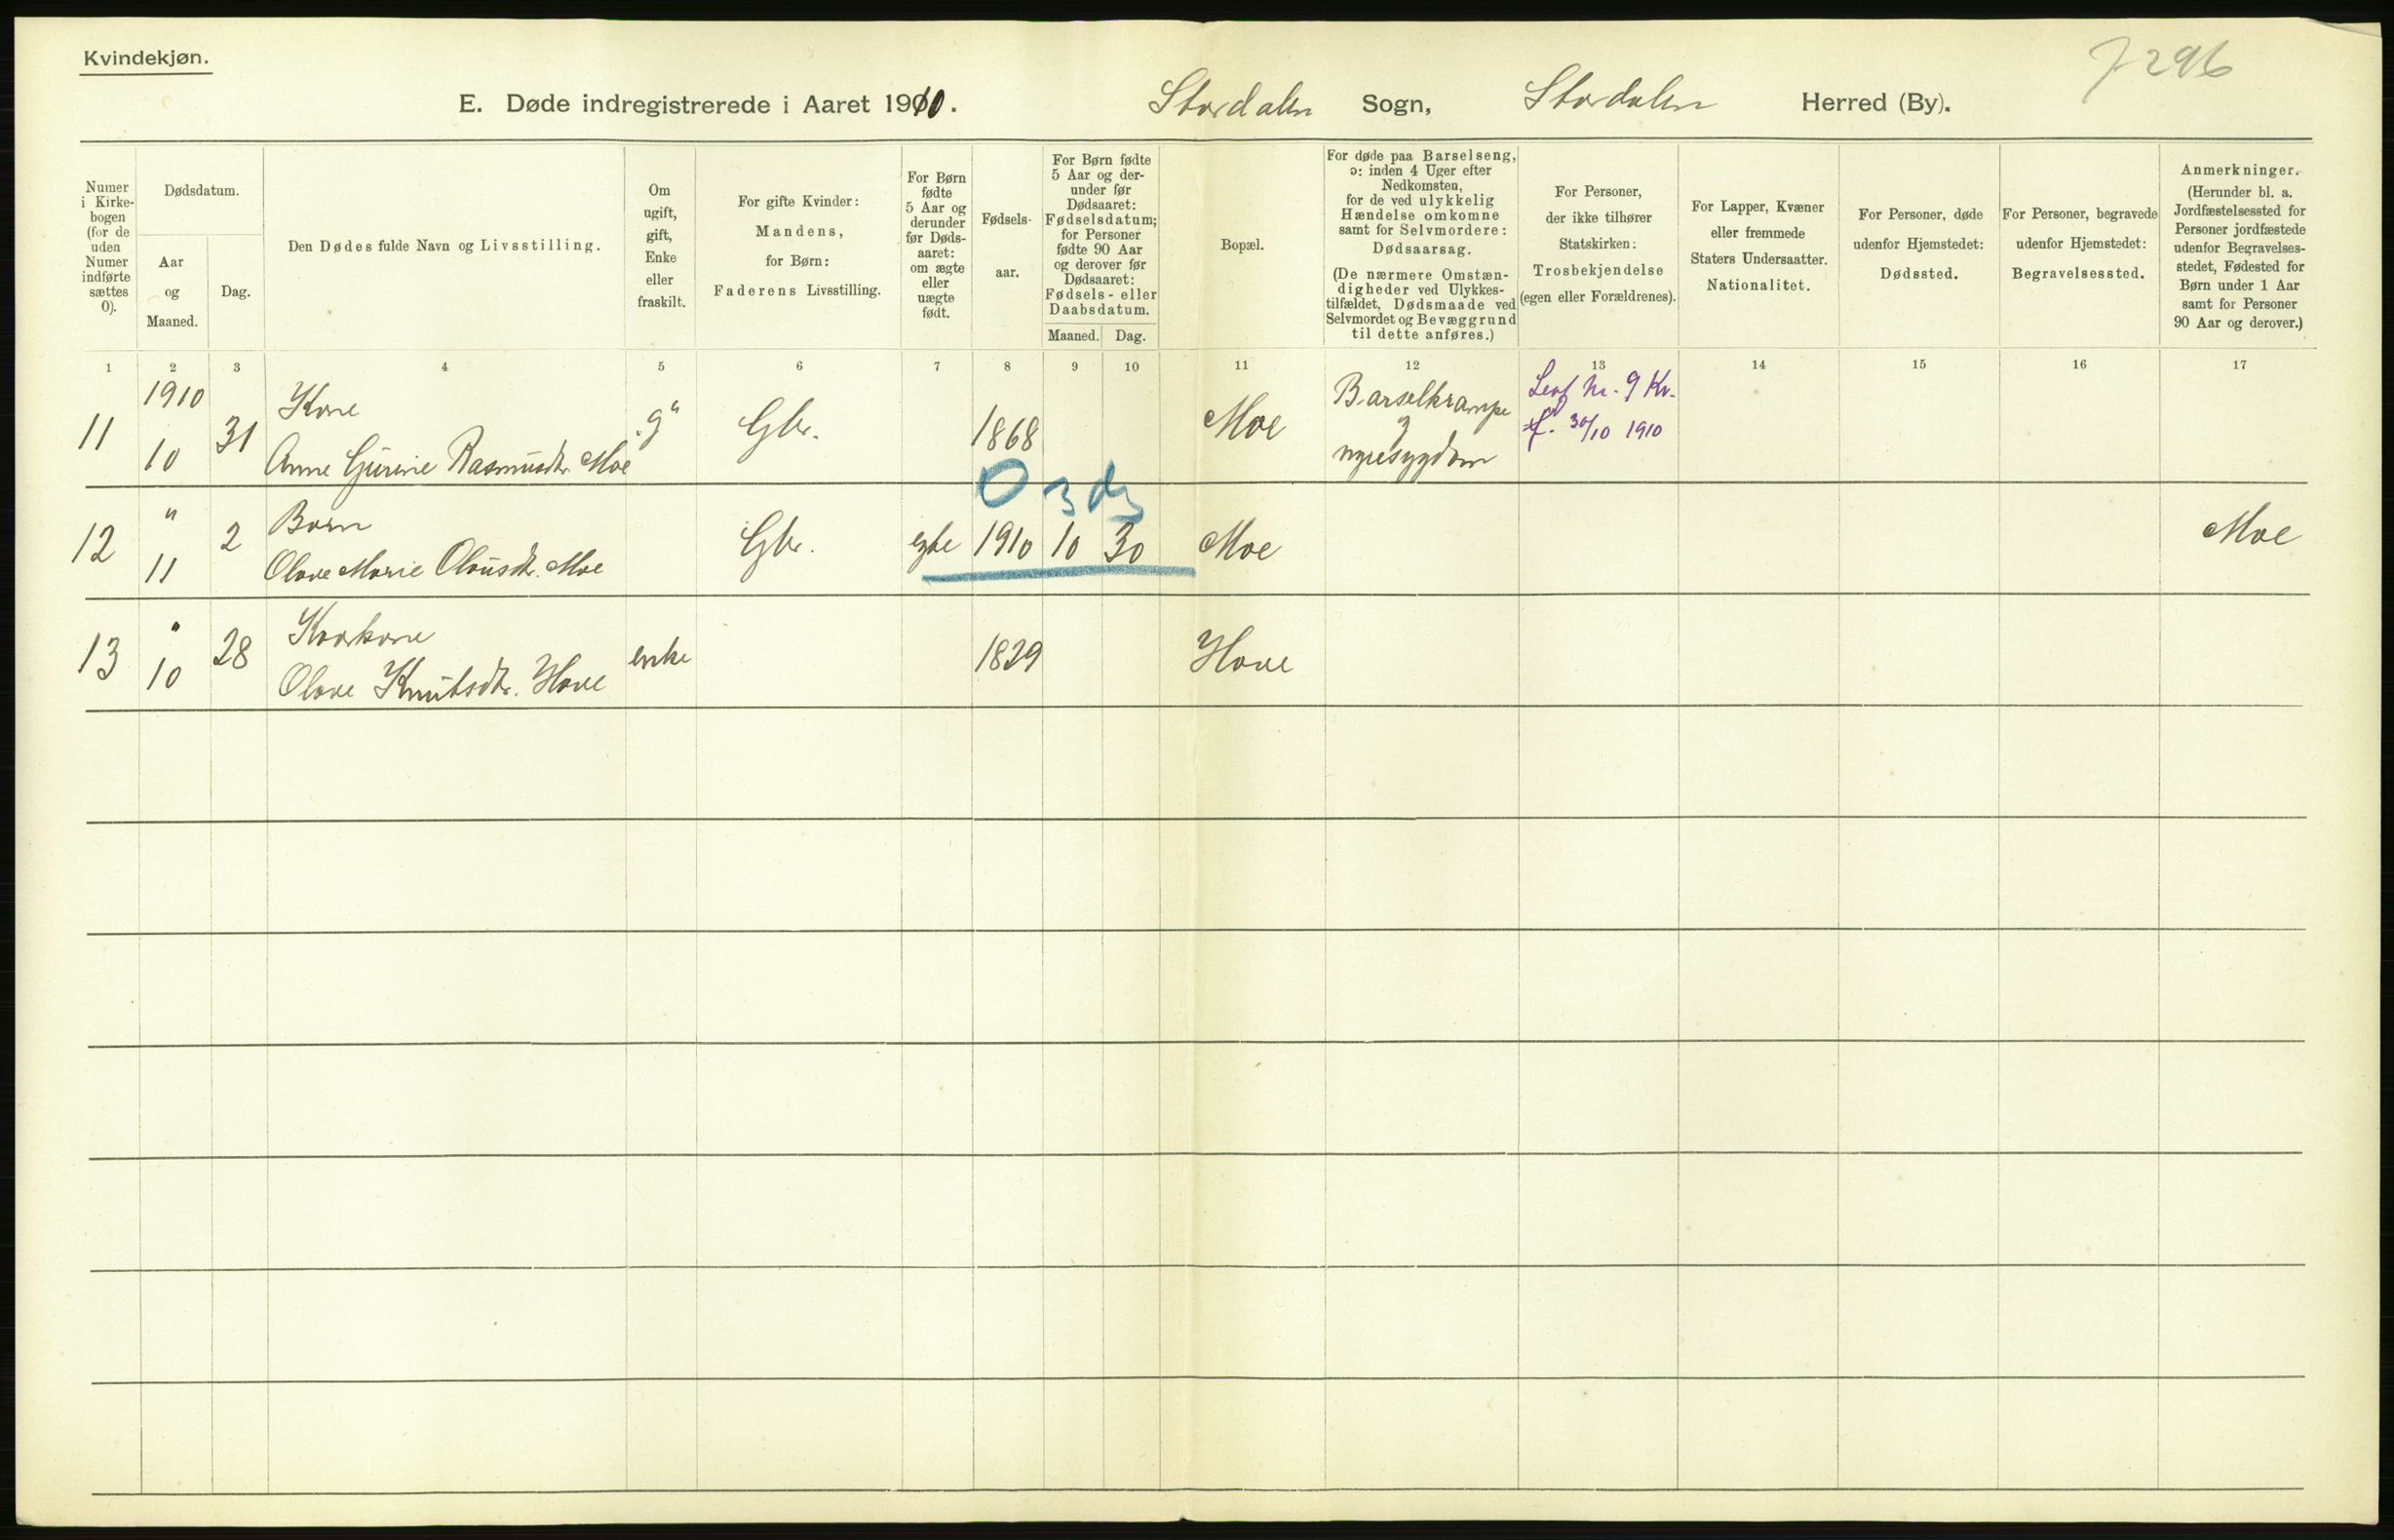 Kvindekjøn.
7296
E. Døde indregistrerede i Aaret 1910. Stordalen Sogn, Stordalen Herred (By).
Numer
i Kirke-
bogen
(for de
uden
Numer
indførte
sættes
0).
Dødsdatum.
Aar
og
Maaned.
Dag.
Den Dødes fulde Navn og Livsstilling.
Om
ugift,
gift,
Enke
eller
fraskilt.
For gifte Kvinder:
Mandens,
for Børn:
Faderens Livsstilling.
For Børn
fødte
5 Aar og
derunder
før Døds-
aaret:
om ægte
eller
uægte
født.
Fødsels-
aar.
For Børn fødte
5 Aar og der-
under før
Dødsaaret:
Fødselsdatum;
for Personer
fødte 90 Aar
og derover før
Dødsaaret:
Fødsels- eller
Daabsdatum.
Maaned. Dag.
Bopæl.
For døde paa Barselseng,
ɔ: inden 4 Uger efter
Nedkomsten,
for de ved ulykkelig
Hændelse omkomne
samt for Selvmordere:
Dødsaarsag.
(De nærmere Omstæn-
digheder ved Ulykkes-
tilfældet, Dødsmaade ved
Selvmordet og Bevæggrund
til dette anføres.)
For Personer,
der ikke tilhører
Statskirken:
Trosbekjendelse
(egen eller Forældrenes).
For Lapper, Kvæner
eller fremmede
Staters Undersaatter.
Nationalitet.
For Personer, døde
udenfor Hjemstedet:
Dødssted.
For Personer, begravede
udenfor Hjemstedet:
Begravelsessted.
Anmerkninger.
(Herunder bl. a.
Jordfæstelsessted for
Personer jordfæstede
udenfor Begravelses-
stedet, Fødested for
Børn under 1 Aar
samt for Personer
90 Aar og derover.)
1 2 3 4 5 6 7 8 9 10 11 12 13 14 15 16 17
11 1910 10 31 Kone
Anne Gurine Rasmusdtr. Moe
"g" Gbr. 1868 Moe Barselkrampe
nyresygdom
Nr. 9 Kv.
f. 30/10 1910
0 3 dg
12 " 11 2 Barn
Olave Marie Olausdtr. Moe
Gbr. egte 1910 10 30 Moe Moe
13 " 10 28 Kaarkone
Olave Knutsdtr. Hove
enke 1829 Hove